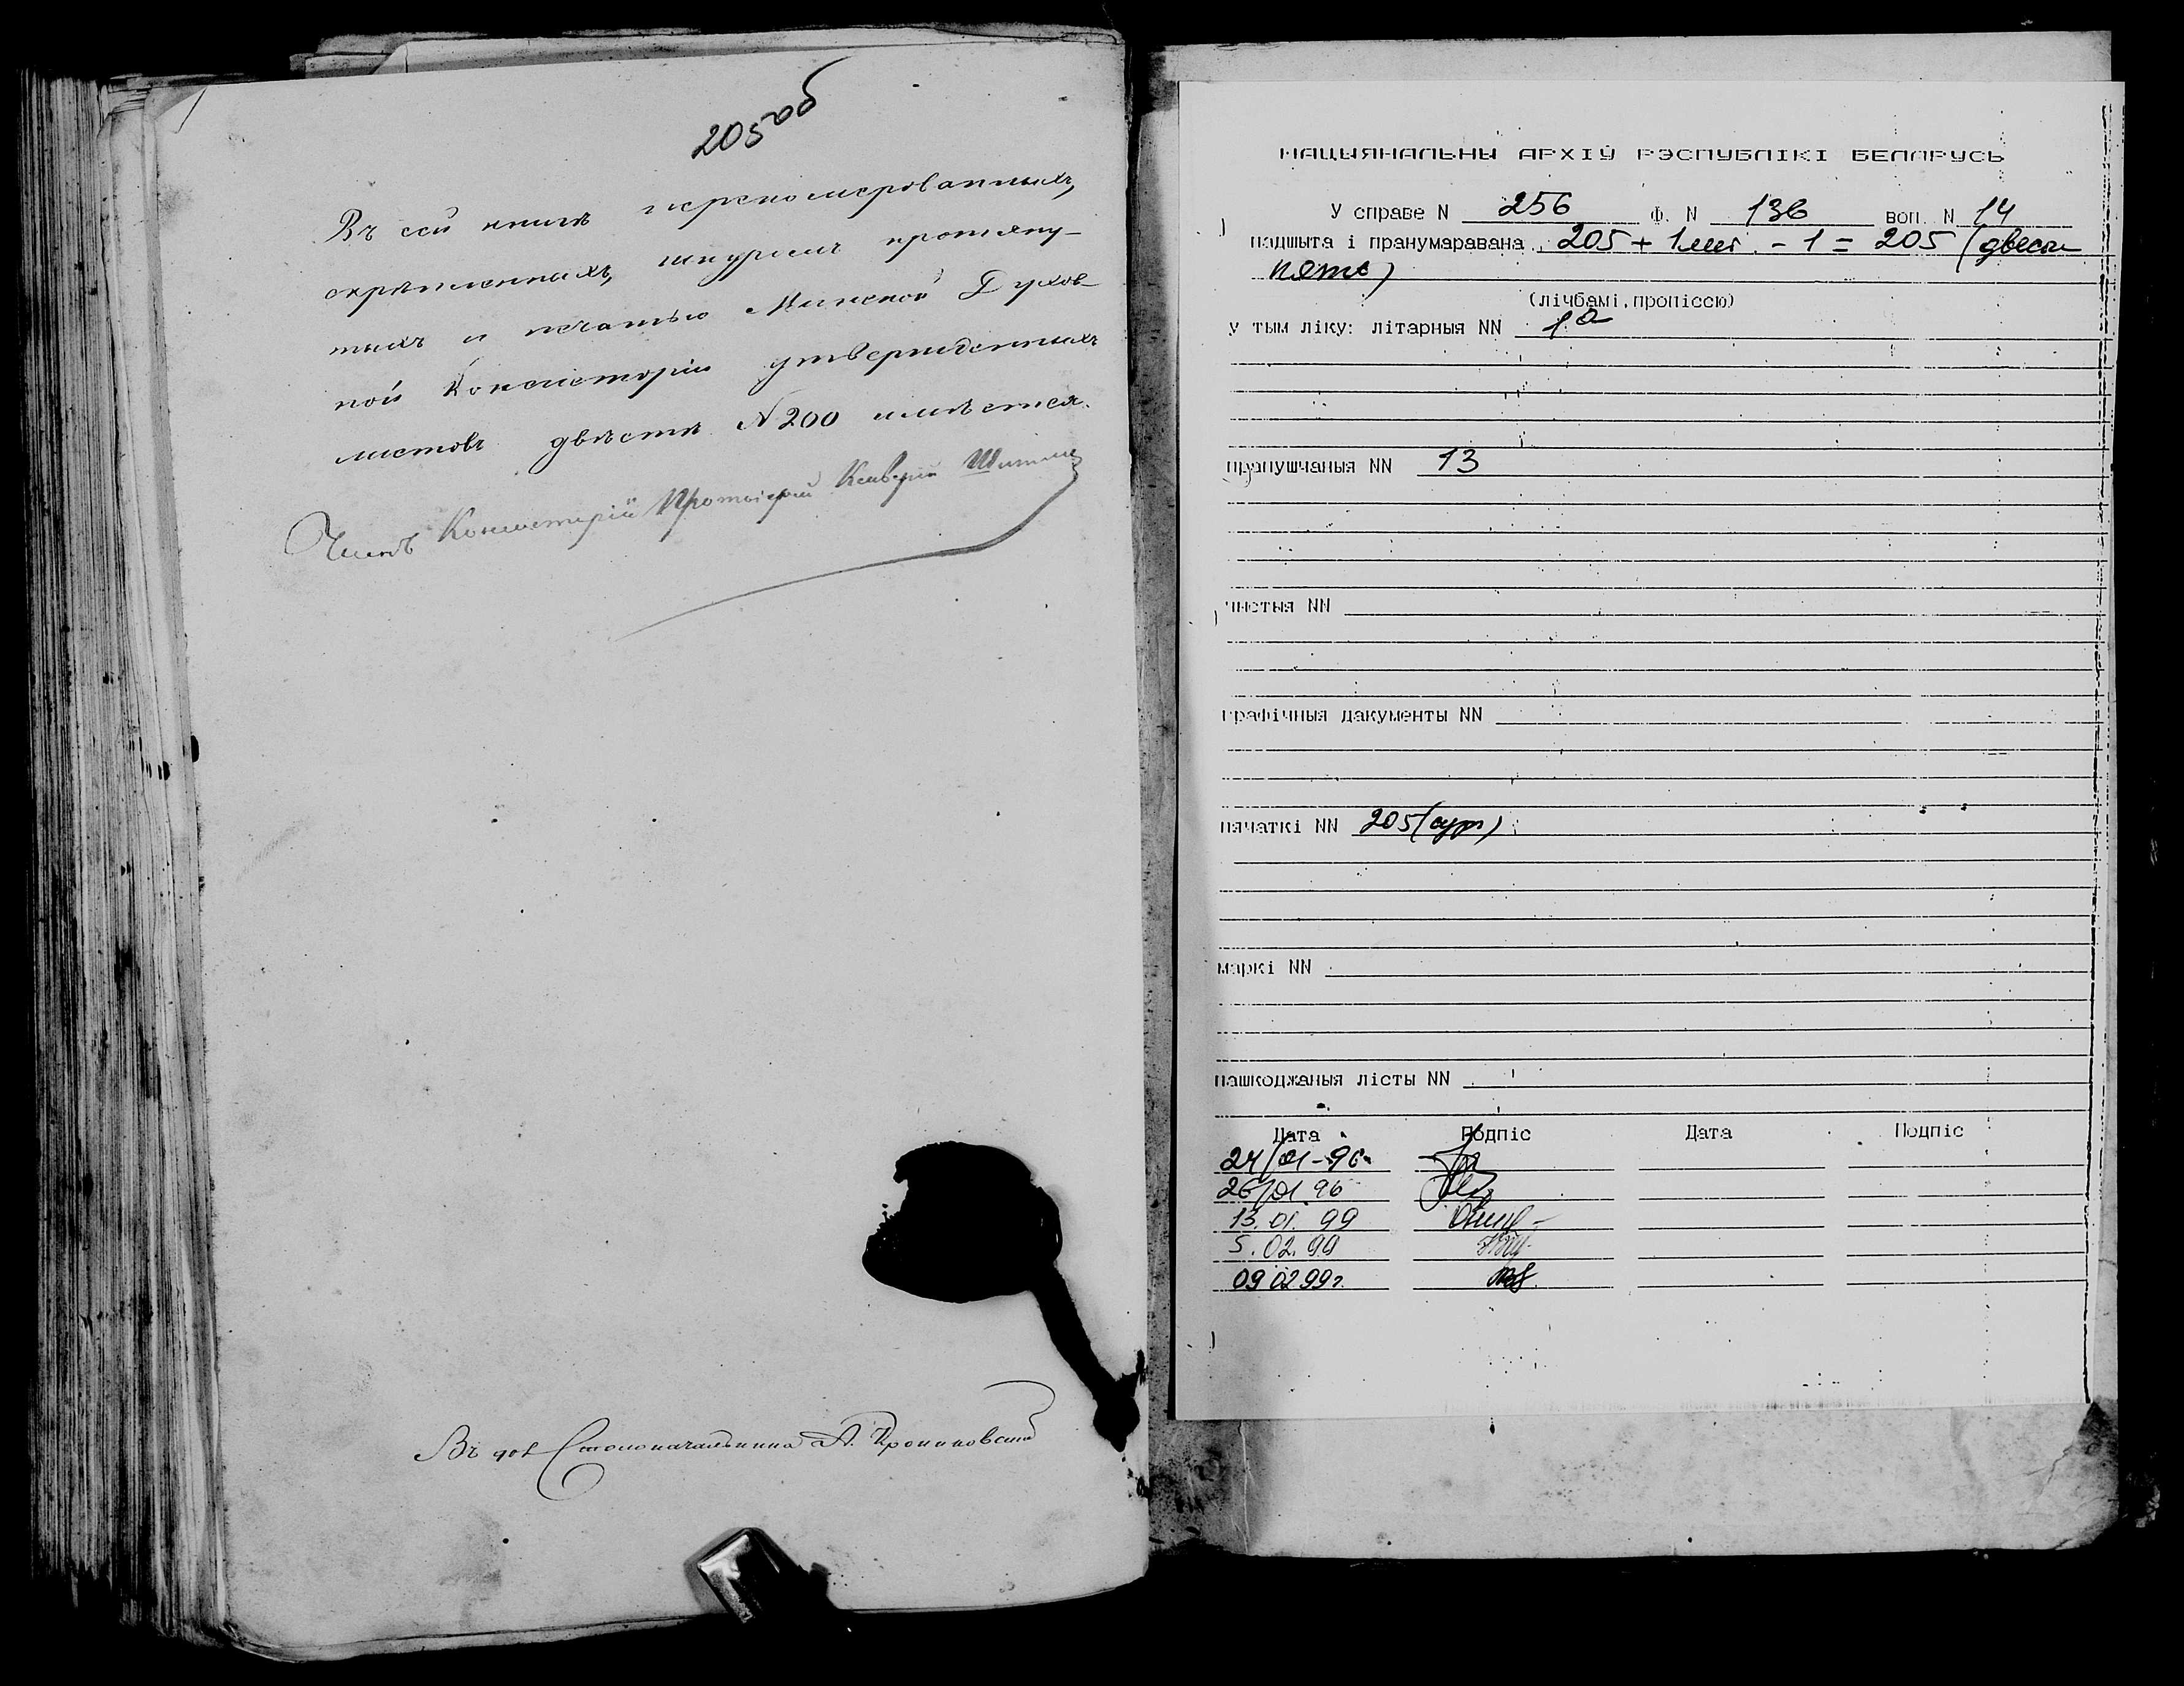 205 об
Въ сей книгѣ перенумерованныхъ,
скрѣпленныхъ, шнуромъ протяну-
тыхъ и печатью Минской Духов-
ной Консисторіи утвержденныхъ
листовъ двѣсти N 200 имѣется.
Членъ Консисторіи Протоіерей
Въ дол Столоначальника А.
НАЦЫЯНАЛЬНЫ АРХІЎ РЭСПУБЛІКІ БЕЛАРУСЬ
У справе N 256 Ф. N 136 воп. N 14
падшыта і пранумаравана 205 + 1 лит. - 1 = 205 (двести
пять)
(лічбамі, пропіссю)
у тым ліку: літарныя NN 1а
прапушчаныя NN 13
чыстыя NN
графічныя дакументы NN
пячаткі NN 205 (сург)
маркі NN
пашкоджаныя лісты NN
Дата Подпіс Дата Подпіс
24/01-96
26/01.96
13.01.99
5.02.99
09.02.99г.